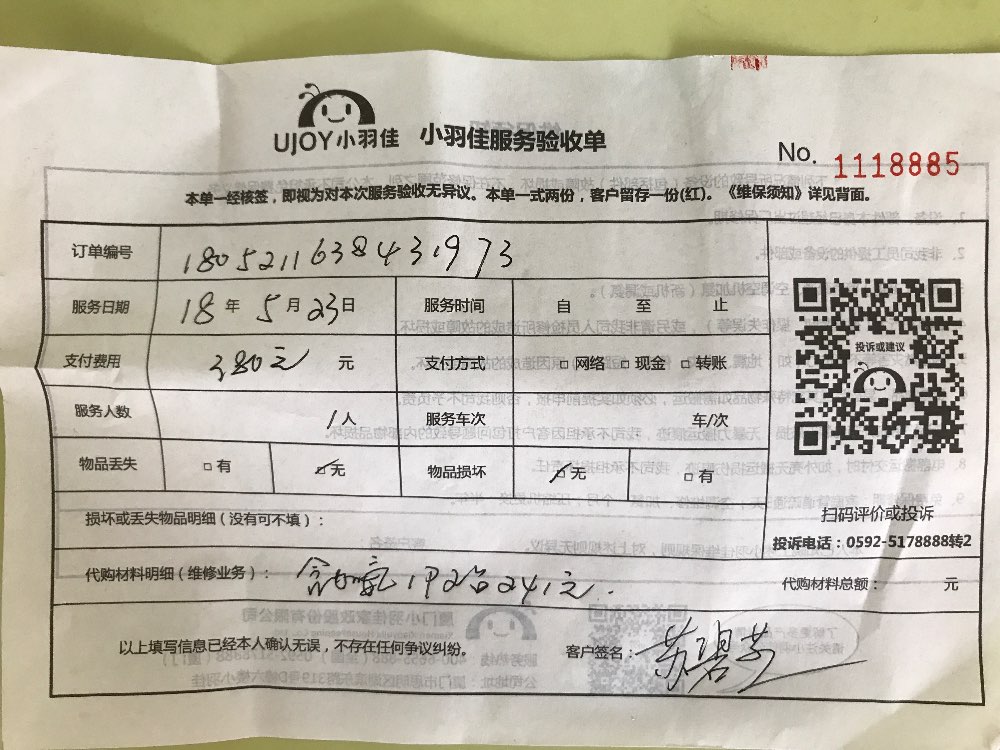 UJOY小羽佳 小羽佳服务验收单
No. 1118885
本单一经核签，即视为对本次服务验收无异议。本单一式两份，客户留存一份(红)。《维保须知》详见背面。
订单编号 1805211638431973
服务日期 18 年 5 月 23 日 服务时间 自 至 止
支付费用 380元 元 支付方式 □ 网络 □ 现金 □ 转账
投诉或建议
服务人数 1人 服务车次 车/次
物品丢失 □ 有 ☑ 无 物品损坏 ☑ 无 □ 有
损坏或丢失物品明细（没有可不填）：
扫码评价或投诉
投诉电话：0592-5178888转2
代购材料明细（维修业务）： 241元.
代购材料总额： 元
以上填写信息已经本人确认无误，不存在任何争议纠纷。
客户签名： 苏碧